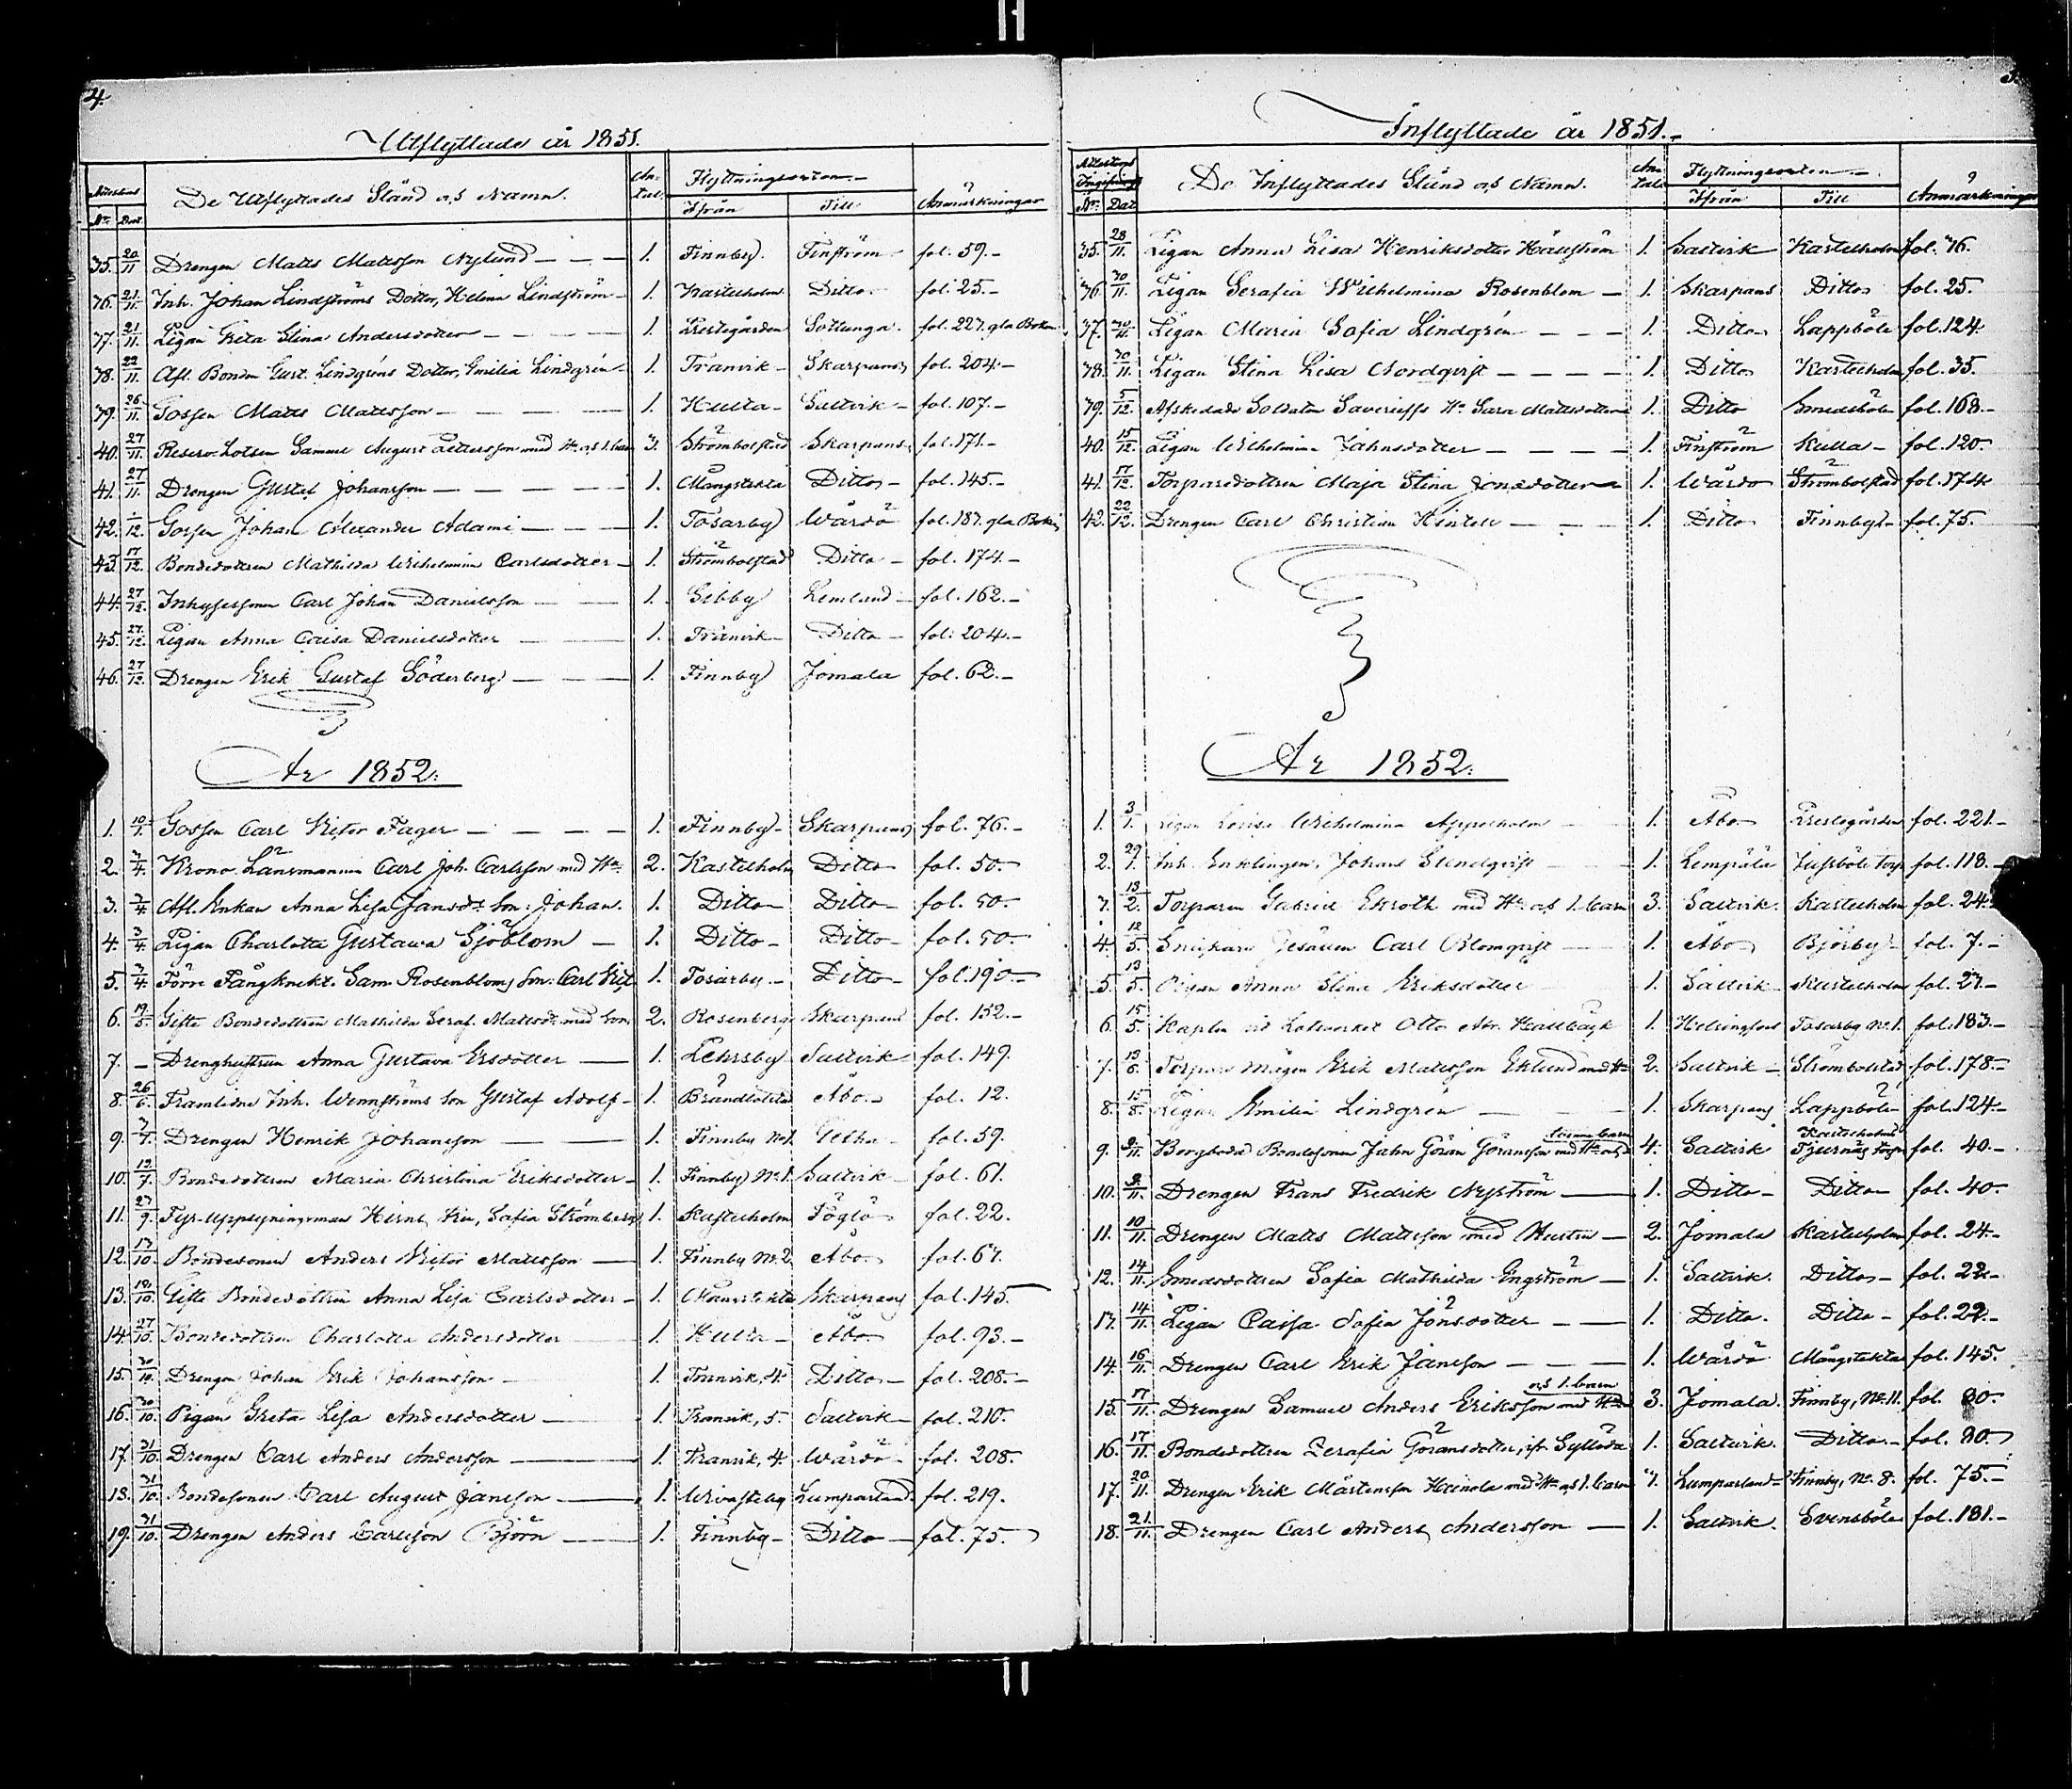 4.
Utflyttade år 1851.
Attestens
No Dat.
De Utflyttades Stånd och Namn.
An-
tal.
Flyttningsorten.
Ifrån Till
Anmärkningar
35. 20/11 Drengen Matts Mattsson Nylund — 1. Finnby. Finström fol. 59.
36. 21/11 Inh. Johan Lindströms Dotter, Helena Lindström 1. Kastelholm Ditto fol. 25.
37. 21/11 Pigan Greta Stina Andersdotter 1. Prestegården Sottunga. fol. 227. gla Boken
38. 22/11 Afl. Bonden Gust. Lindgréns Dotter, Emilia Lindgrén 1. Tranvik Skarpans fol. 204.
39. 26/11 Gossen Matts Mattsson 1. Kulla Saltvik fol. 107.
40. 27/11 Reserv-Lotsen Samuel August Pettersson med Hu. och 1. barn 3. Strömbolstad Skarpans fol. 171.
41. 27/11 Drengen Gustaf Johansson 1. Mångstekta Ditto fol. 145.
42. 1/12 Gossen Johan Alexander Adami 1. Tosarby Wårdö fol. 187. gla Boken
43. 17/12 Bondedottren Mathilda Wilhelmina Carlsdotter 1. Strömbolstad Ditto fol. 174.
44. 27/12 Inhysessonen Carl Johan Danielsson 1. Gebby Lemland fol. 162.
45. 27/12 Pigan Anna Caisa Danielsdotter 1. Tranvik Ditto fol. 204.
46. 27/12 Drengen Erik Gustaf Söderberg 1. Finnby Jomala fol. 62.
År 1852.
1. 10/1 Gossen Carl Victor Fager 1. Finnby Skarpans fol. 76.
2. 3/4 Krono Länsmannen Carl Joh. Carlsson med Hu 2. Kastelholm Ditto fol. 50.
3. 3/4 Afl. Enkan Anna Lisa Jansdr. Son: Johan. 1. Ditto Ditto fol. 50.
4. 3/4 Pigan Charlotta Gustawa Sjöblom 1. Ditto Ditto fol. 50.
5. 3/4 Förre Fångknekt. Sam. Rosenbloms Son: Carl Vict 1. Tosarby Ditto fol. 190.
6. 19/5 Gifta Bondedottren Mathilda Seraf. Mattsdr. med Son 2. Rosenberg Skarpans fol. 152.
7. — Drenghustrun Anna Gustava Ersdotter 1. Pehrsby Saltvik fol. 149.
8. 26/6 Framlidne Inh. Wennströms Son Gustaf Adolf 1. Brändbolstad Åbo fol. 12.
9. 3/7 Drengen Henrik Johansson 1. Finnby No 1. Getha fol. 59.
10. 19/7 Bondedottren Maria Christina Eriksdotter 1. Finnby No 1. Saltvik fol. 61.
11. 27/9 Fyr-Uppsyningsman Sofia Strömberg 1. Kastelholm Föglö fol. 22.
12. 13/10 Bondesonen Anders Victor Mattsson 1. Finnby No. 2 Åbo fol. 67.
13. 19/10 Gifta Bondedottren Anna Lisa Carlsdotter 1. Mångstekta Skarpans fol. 145.
14. 27/10 Bondedottren Charlotta Andersdotter 1. Kulla Åbo fol. 93.
15. 30/10 Drengen Johan Erik Johansson 1. Tranvik, 4. Ditto fol. 208.
16. 30/10 Pigan Greta Lisa Andersdotter 1. Tranvik, 5. Saltvik fol. 210.
17. 31/10 Drengen Carl Anders Andersson 1. Tranvik, 4. Wårdö fol. 208.
18. 31/10 Bondesonen Carl August Jansson 1. Lumparland fol. 219.
19. 31/10 Drengen Anders Carlsson Björn 1. Finnby Ditto fol. 75.
Inflyttade år 1851.
No. Dat
De Inflyttades Stånd och Namn.
An-
tal
Flyttningsorten
Ifrån Till
Anmärkningar
35. 28/11 Pigan Anna Lisa Henriksdotter Hällström 1. Saltvik Kastelholm fol. 36.
36. 30/11 Pigan Serafia Wilhelmina Rosenblom 1. Skarpans Ditto fol. 25.
37. 30/11 Pigan Maria Sofia Lindgrén 1. Ditto Lappböle fol. 124.
38. 30/11 Pigan Stina Lisa Nordqvist 1. Ditto Kastelholm fol. 35.
39. 5/12 Afskedade Soldaten Savérieffs Hu Sara Mattsdotter 1. Ditto Smedsböle fol. 168.
40. 15/12 Pigan Wilhelmina Jahnsdotter 1. Finström Kulla fol. 120.
41. 17/12 Torparedottren Maja Stina Jansdotter 1. Wårdö Strömbolstad fol. 174
42. 22/12 Drengen Carl Christian Hintell 1. Ditto Finnby fol. 75.
År 1852.
1. 3/1 Pigan Lovisa Wilhelmina Appelholm 1. Åbo Prestegården fol. 221.
2. 29/1 Inh. Enklingen, Johans Stendqvist 1. Lempäla Jussböle torp fol. 118.
3. 13/2 Torparen Gabriel Ekroth med Hu och 1. barn 3. Saltvik. Kastelholm fol. 24.
4. 12/5 Snickare Gesällen Carl Blomqvist 1. Åbo Björby fol. 7.
5. 13/5 Pigan Anna Stina Eriksdotter 1. Saltvik Kastelholm fol. 27.
6. 15/5 Kaplen vid Lotsverket Otto Abr. 1. Helsingfors Tosarby No 1. fol. 183.
7. 13/6 Torpare Mågen Erik Mattsson Eklund med Hu 2. Saltvik Strömbolstad fol. 178.
8. 15/8 Pigan Emilia Lindgrén 1. Skarpans Lappböle fol. 124.
9. 9/11 Borgboda Bondesonen Jahn Göran Göransson med Hu och tvenne barn 4. Saltvik Kastelholms Tjernäs torp fol. 40.
10. 9/11 Drengen Frans Fredrik Nyström 1. Ditto Ditto fol. 40.
11. 10/11 Drengen Matts Mattsson med Hustru 2. Jomala Kastelholm fol. 24.
12. 14/11 Smedsdottren Sofia Mathilda Engström 1. Saltvik. Ditto fol. 22.
13. 14/11 Pigan Caisa Sofia Jönsdotter 1. Ditto. Ditto fol. 22.
14. 16/11 Drengen Carl Erik Jansson 1. Wårdö Mångstekta fol. 145.
15. 17/11 Drengen Samuel Anders Eriksson med Hu och 1. barn 3. Jomala. Finnby, No. 11. fol. 80.
16. 17/11 Bondedottren Serafia Göransdotter, 1. Saltvik. Ditto fol. 80.
17. 20/11 Drengen Erik Mårtensson Heinola med Hu och 1. barn 3. Lumparland Finnby, No. 8. fol. 75.
18. 21/11 Drengen Carl Anders Andersson 1. Saltvik. Svensböle fol. 181.